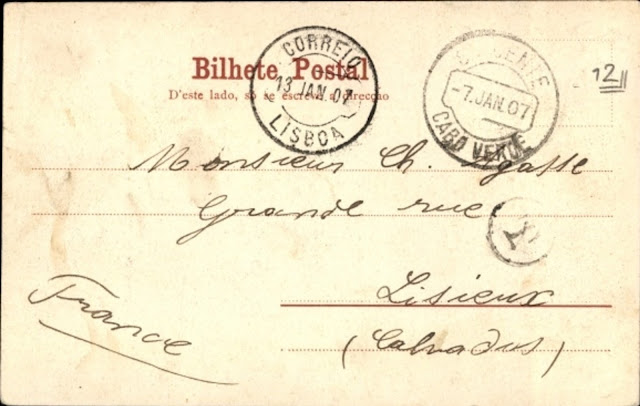 Bilhete Postal
D'este lado, só se escreve a direcção
CORREIO
13 JAN. 07
LISBOA
S. VICENTE
-7. JAN. 07
CABO VERDE
12
Monsieur Ch. gasse
Grande rue
Lisieux
(Calvados)
France